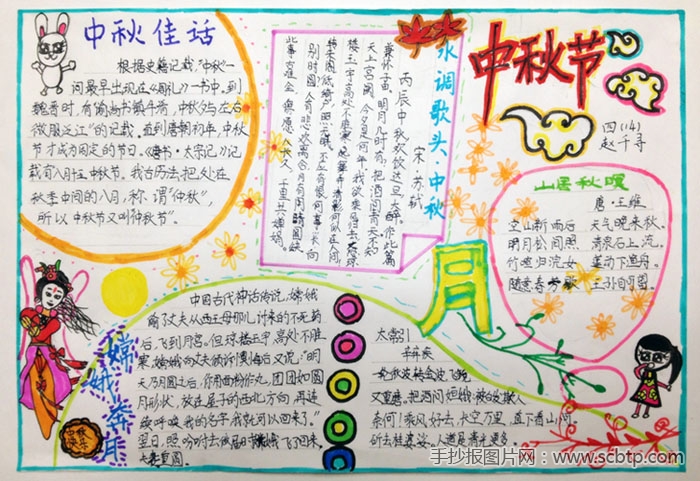 中秋佳话
根据史籍记载,"中秋一
词最早出现在《周礼》一书中,到
魏晋时,有"谕尚书镇牛渚,中秋夕与左右
微服泛江"的记载,直到唐朝初年,中秋
节才成为固定的节日。《唐书·太宗记》记
载有"八月十五中秋节。我古历法,把处在
秋季中间的八月,称谓"仲秋",
所以中秋节又叫"仲秋节"。
水调歌头、中秋
宋·苏轼
丙辰中秋欢饮达旦大醉作此篇
兼怀子由。明月几时有,把酒问青天不知
天上宫阙,今夕是何年我欲乘风归去
人有悲欢离合月有阴晴圆缺
此事古难全但愿人长久,千里共婵娟。
中秋节
四(14)
赵千寻
山居秋暝
唐·王维
空山新雨后 天气晚来秋。
明月松间照 清泉石上流。
竹喧归浣女 莲动下渔舟。
随意春芳歇 王孙自可留。
月
嫦娥奔月
中国古代神话传说,嫦娥
偷了丈夫从西王母那儿讨来的不死药
后,飞到月宫。但琼楼玉宇,高处不胜
寒,嫦娥向丈夫倾诉懊悔后又说:"明
天乃月圆之后,你用面粉作丸,团团如圆
月形状,放在屋子的西北方向,再连
续呼唤我的名字,我就可以回来了。"
翌日,照吩咐去做,届时嫦娥飞了回来,
中秋
快乐
太常引
辛弃疾
一轮秋波转金波,飞镜
又重磨,把酒问姮娥:被白发欺人
奈何!乘风好去,长空万里,直下看山河。
斫去桂婆娑,人道是清光更多
手抄报图片网:www.scbtp.com